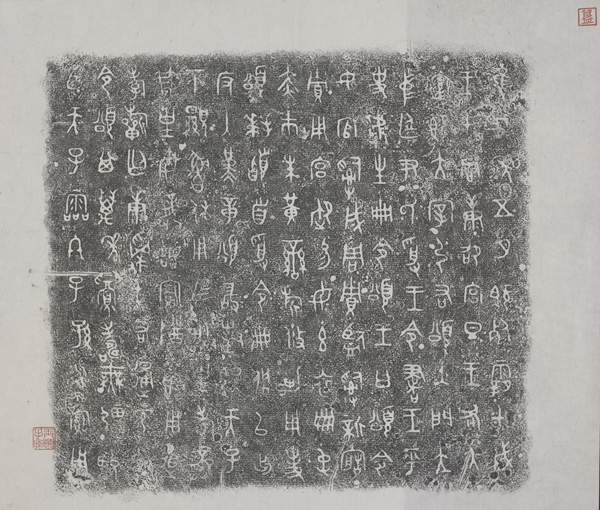 隹三年五月既死霸甲戌
王才周康卲宮旦王各大
室即立宰弘右頌入門立
中廷尹氏受王令書王乎
史虢生冊令頌王曰頌令
女官𤔲成周貯監𤔲新造
貯用宮御易女玄衣黹屯
赤巿朱黃䜌旂攸勒用事
頌拜𩒨首受令冊佩以出
反入堇章頌敢對揚天子
不顯魯休用乍朕皇考龏弔
皇母龏姒寶尊鼎用追
孝祈匄康𩛥屯右通彔永
令頌其萬年眉壽畯
臣天子霝冬子孫寶用